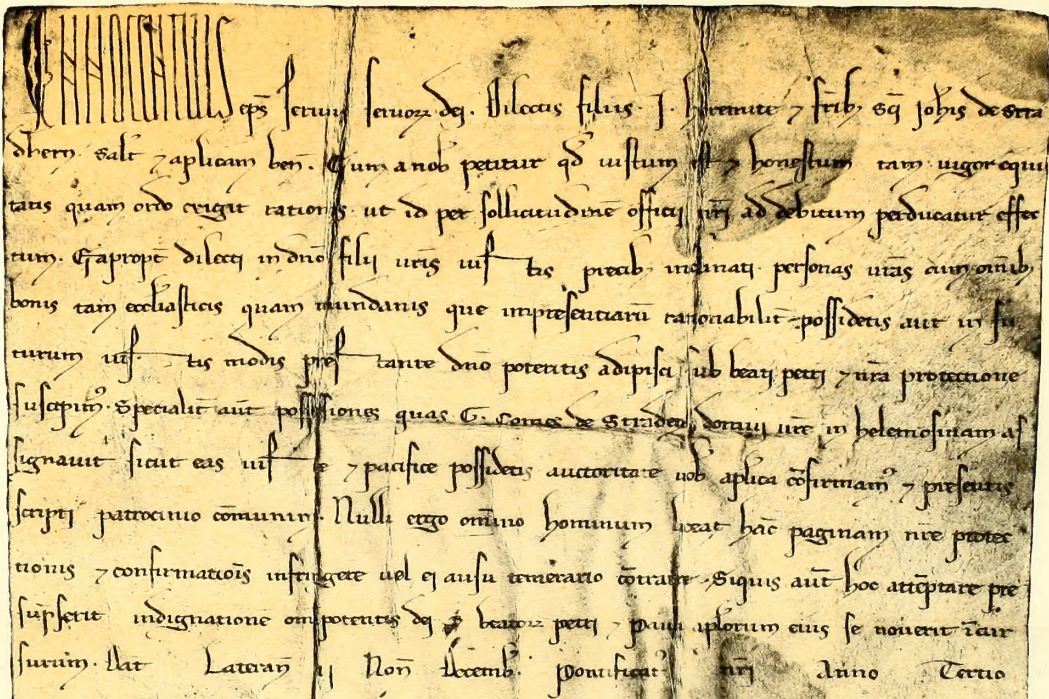 INNOCENTIUS eps servus servoꝝ dei. Dilectis filiis. I. heremite ⁊ frīb; Sc̄i Joh̄is de Stra
dhern. Salt̄ ⁊ aplicam ben̄. Cum a nob̄ petitur qd̄ iustum est ⁊ honestum tam uigor equi
tatis quam ordo exigit rationis. ut id per sollicitudinē officii nr̄i ad debitum perducatur effec
tum. Eapropt̄ dilecti in dn̄o filii ur̄is iustis precib; inclinati personas ur̄as cum om̄ib;
bonis tam eccl̄iasticis quam mundanis que inpresentiarū rationabilit̄ possidetis aut in fu
turum iustis modis prestante dn̄o poteritis adipisci sub beati petri ⁊ nr̄a protectione
suscipim⁹. Specialit̄ aūt possessiones quas G. Comes de Stradern̄ domui ur̄e in helemosinam as
signauit sicut eas iuste ⁊ pacifice possidetis auctoritate uob̄ aplica cōfirmam⁹ ⁊ presentis
scripti patrocinio cōmunim⁹. Nulli ergo om̄ino hominum liceat hāc paginam nr̄e protec
tionis ⁊ confirmatiōis infringere uel ei ausu temerario cōtraire. Siquis aūt hoc attēptare pre
sūpserit indignationē om̄ipotentis dei ⁊ beatoꝝ petri ⁊ Pauli aplorum eius se nouerit īcur
surum. Dat Lateran̄ ii Non̄ Decemb̄. Pontificat⁹ nr̄i Anno Tertio